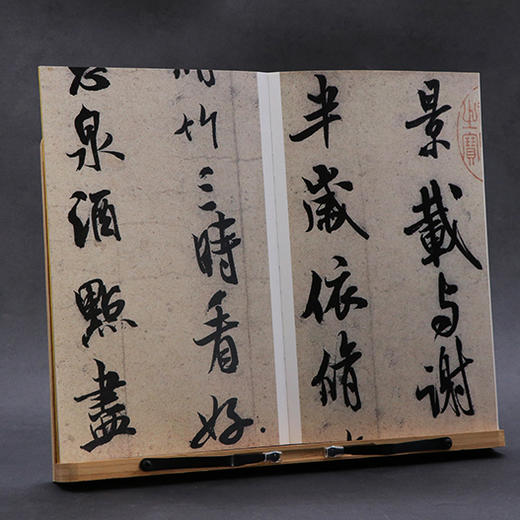 景載与謝
半歲依脩
竹三時看好
泉酒點盡
之寶